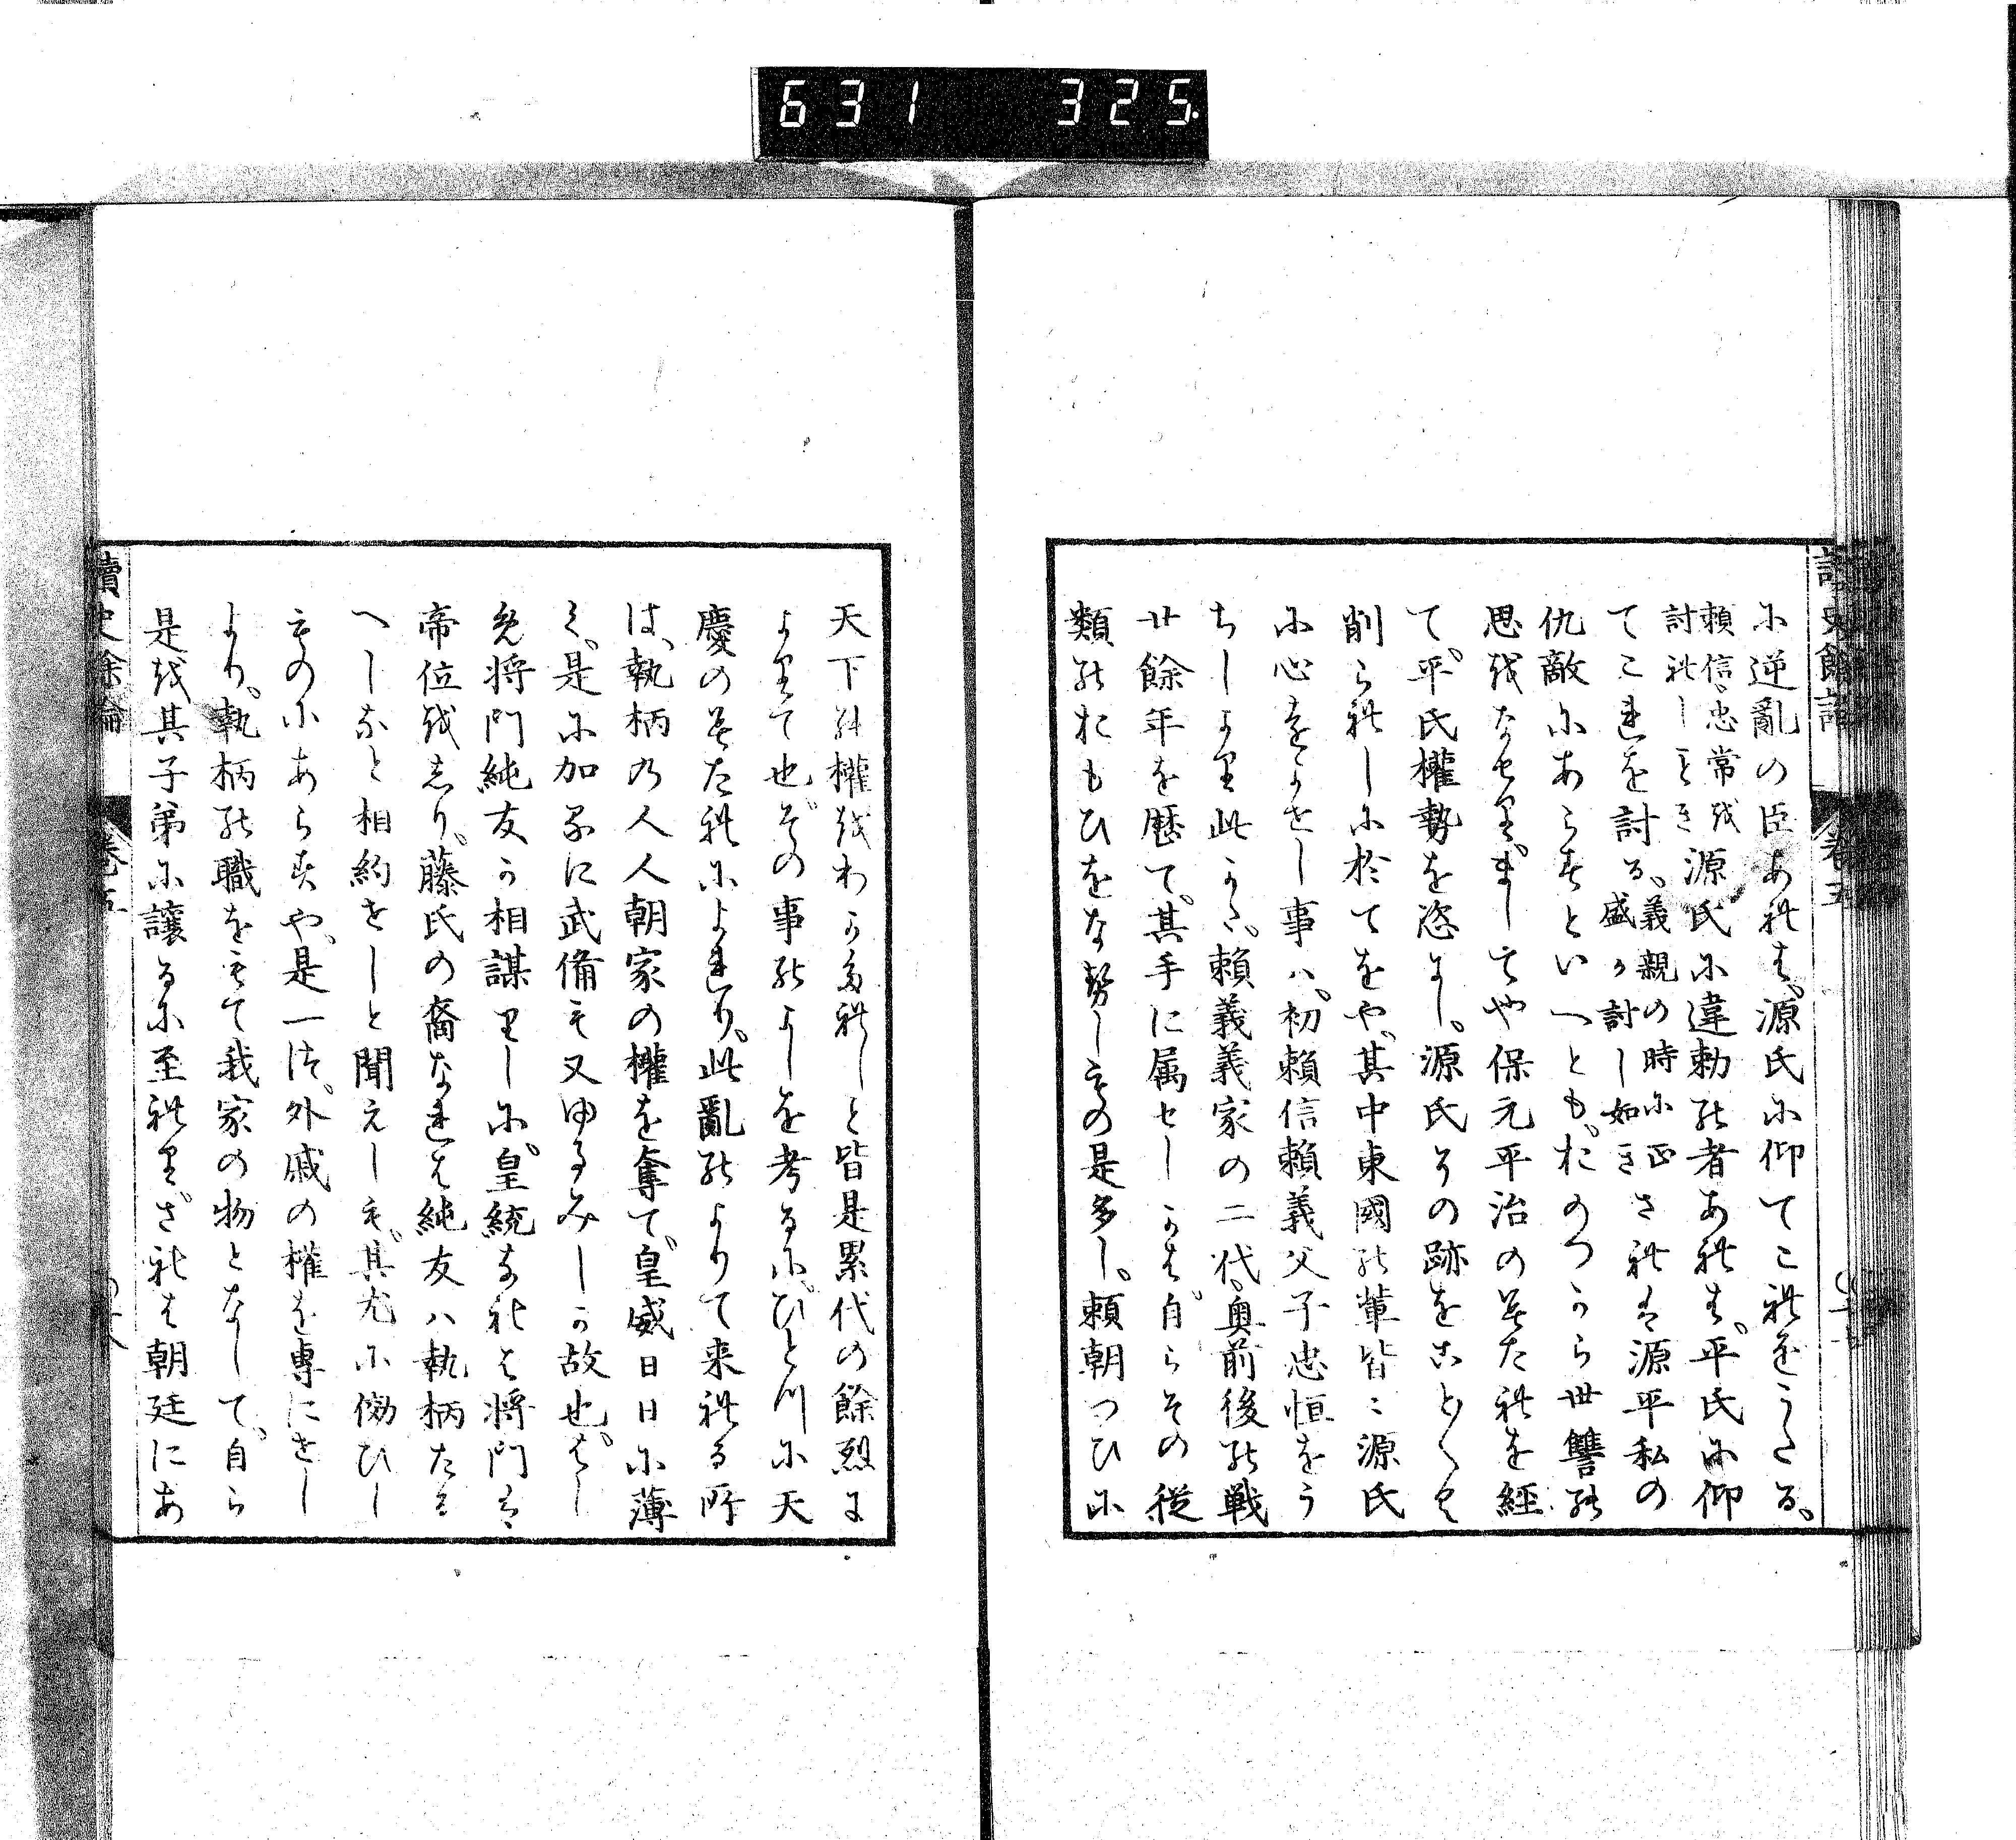 631 325.
に逆亂の臣あれは、源氏に仰てこれをうたる、
頼信、忠常を
討れしとき
源氏に違勅の者あれは、平氏に仰
てこれを討る、
義親の時に正
盛か討し如き
されは源平私の
仇敵にあらすといへとも、おのつから世讐の
思をなせり、ましてや保元平治のみたれを経
て、平氏權勢を恣にし、源氏その跡をことくく
削られしに於てをや、其中東國の輩皆〻源氏
に心をよせし事ハ、初頼信頼義父子忠恒をう
ちしより此かた、頼義義家の二代、奥前後の戦
廿餘年を歴て、其手に属セしかは、自らその従
類のおもひをな勢しもの是多し、頼朝つひに
天下の權をわかたれしと皆是累代の餘烈に
よりて也、その事のよしを考るに、ひとつに天
慶のみたれによれり、此亂のよりて来れる所
は、執柄の人人朝家の權を奪て、皇威日日に薄
く、是に加るに武備も又ゆるみしか故也、はし
め将門純友か相謀りしに、皇統なれは将門は
帝位をしり、藤氏の裔なれは純友ハ執柄たる
へしなと相約をしと聞えしも、其尤に傚ひし
ものにあらすや、是一つ、外戚の權を専にせし
より、執柄の職をもて我家の物となして、自ら
是を其子弟に讓るに至れり、されは朝廷にあ
讀史餘論
卷五